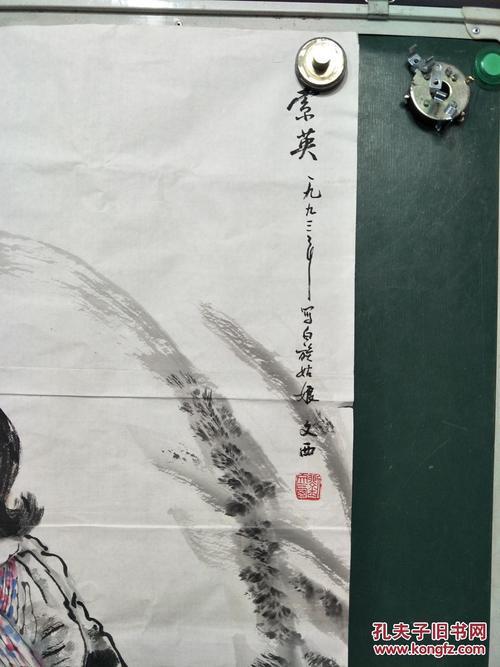 索英
一九九三年写白族姑娘 文西
孔夫子旧书网
www.kongfz.com